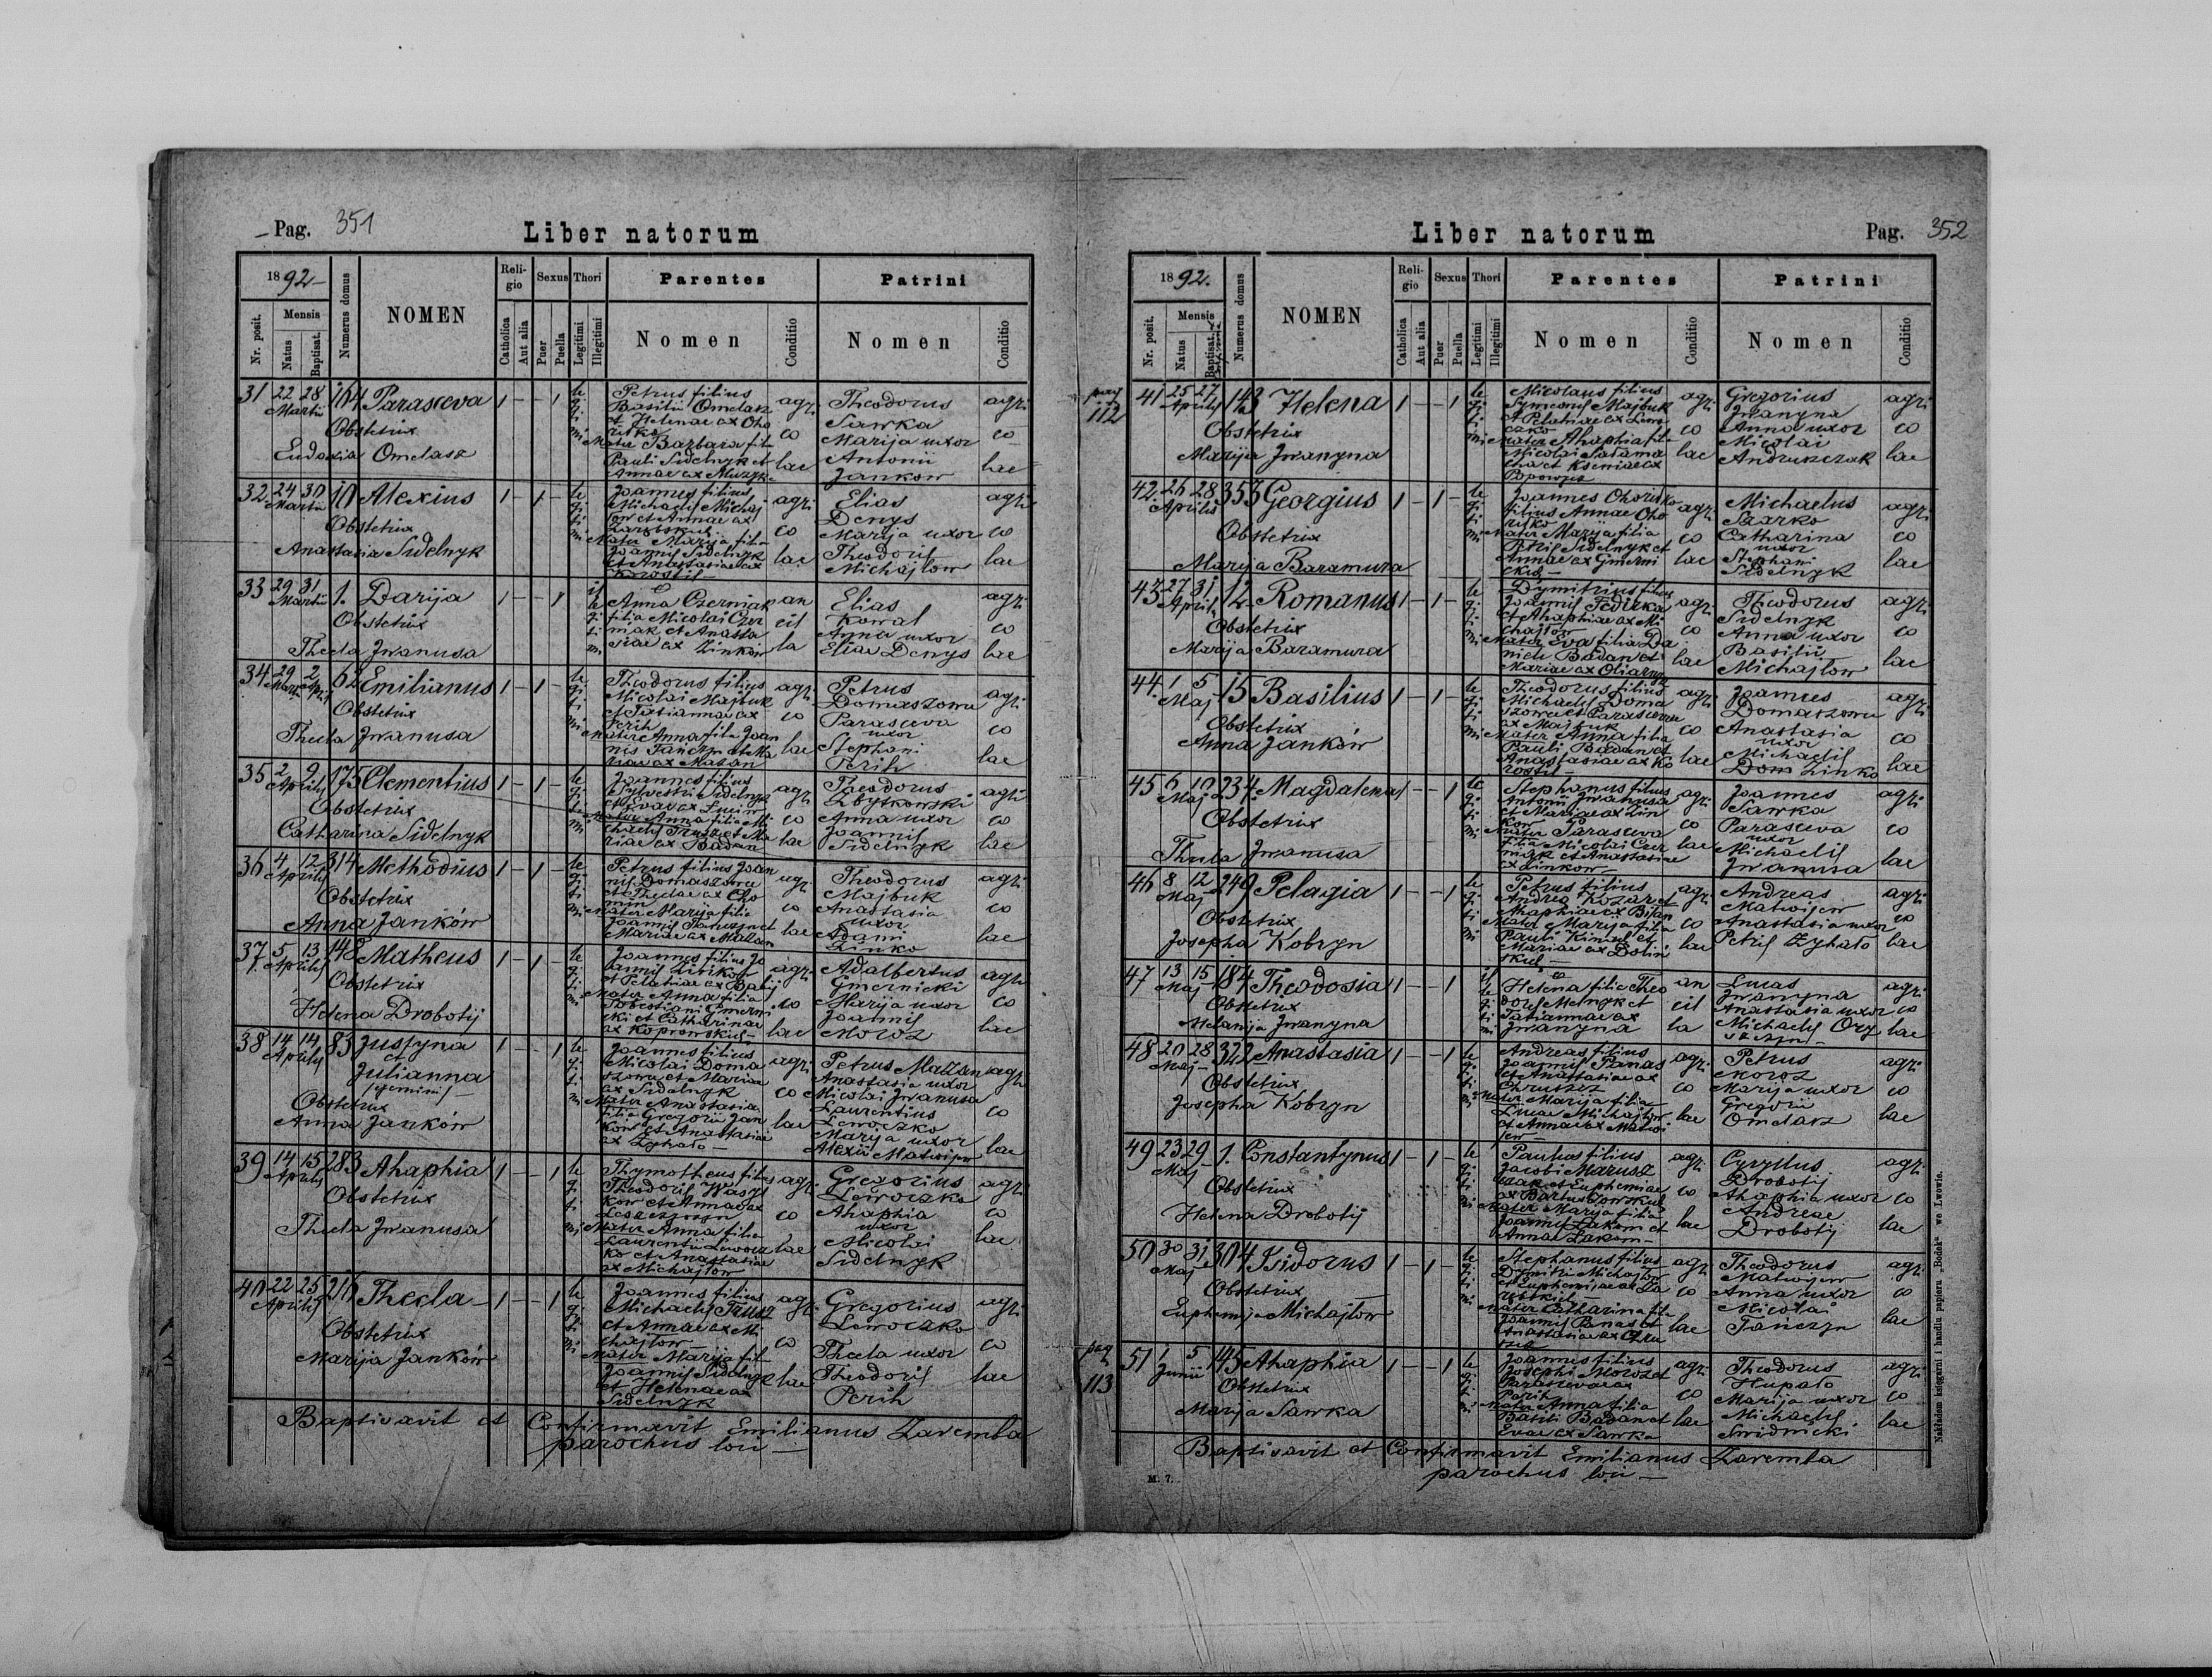 Pag. 351
Liber natorum
1892
Nr. posit.
Mensis
Natus
Baptisat.
Numerus domus
NOMEN
Religio
Catholica
Aut alia
Sexus
Puer
Puella
Thori
Legitimi
Illegitimi
Parentes
Nomen
Conditio
Patrini
Nomen
Conditio
31 22 28 Martii 164 Parasceva 1 - - 1
Obstetrix
Eudoxia Omelasz
legitimi
Petrus filius
Basilii Omelasz
et Helenae ex Oho
risko
Mater Barbara filia
Pauli Sidelnyk et
Annae ex Muzyka
agricolae
Theodorus
Sawka
Marija uxor
Antonii
Jankow
agricolae
32. 24 30 Martii 10 Alexius 1 - 1 -
Obstetrix
Anastasia Sidelnyk
legitimi
Joannes filius
Michaelis Michaj
low et Annae ex
Mater Marija filia
Joannis Sidelnyk
et Anastasiae ex
Korostil
agricolae
Elias
Denys
Marija uxor
Theodoris
Michajlow
agricolae
33 29 31 Martii 1. Darija 1 - - 1
Obstetrix
Thecla Jwanusa
illegitimi
Anna Czerniak
filia Nicolai Czer
niak et Anasta
siae ex Zinkow
ancilla
Elias
Kowal
Anna uxor
Eliae Denys
agricolae
34 29 Martii 2 April 62 Emilianus 1 - 1 -
Obstetrix
Thecla Jwanusa
legitimi
Theodorus filius
Nicolai Majbuk
et Tatiannae ex
Perih
Mater Anna filia Joan
nis Tanczyn et Ma
riae ex Mazan
agricolae
Petrus
Domaszowec
Parasceva
uxor
Stephani
Perih
agricolae
35 2 9 Aprilis 175 Clementius 1 - 1 -
Obstetrix
Catharina Sidelnyk
legitimi
Joannes filius
Sylvestri Sidelnyk
et Evae ex
Mater Anna filia Mi
chaelis Trusz et Ma
riae ex Badan
agricolae
Theodorus
Zbytkowski
Anna uxor
Joannis
Sidelnyk
agricolae
36 4 12 Aprilis 314 Methodius 1 - 1 -
Obstetrix
Anna Janków
legitimi
Petrus filius Joan
nis Domaszowec
et Theclae ex Cho
min
Mater Marija filia
Joannis Tanczyn et
Mariae ex Mazan
agricolae
Theodorus
Majbuk
Anastasia
uxor
Adami
Zinko
agricolae
37. 5 13 Aprilis 148 Matheus 1 - 1 -
Obstetrix
Helena Drobotij
legitimi
Joannes filius Jo
annis Zinkow
et Pelahiae ex
Mater Anna filia
Sobestiani Gmerni
cki et Catharinae
ex Koprowskich
agricolae
Adalbertus
Gmernicki
Marija uxor
Joannis
Moroz
agricolae
38 14 14 Aprilis 83 Justyna
et
Julianna
gemini
1 - - 1
Obstetrix
Anna Janków
legitimi
Joannes filius
Nicolai Doma
szowec et Mariae
ex Sidelnyk
Mater Anastasia
filia Gregorii Jan
kow et Anastasiae
ex Zyhalo
agricolae
Petrus Mazan
Anastasia uxor
Nicolai Jwanusa
Laurentius
Lewoczko
Marija uxor
Alexii Matwijow
agricolae
39 14 15 Aprilis 283 Ahaphia 1 - - 1
Obstetrix
Thecla Jwanusa
legitimi
Thymotheus filius
Theodoris Wasyl
kow et Annae ex
Leszczyszyn
Mater Anna filia
Laurentii Lewocz
ko et Anastasiae
ex Michajlow
agricolae
Gregorius
Lewoczko
Ahaphia
uxor
Nicolai
Sidelnyk
agricolae
40 22 25 Aprilis 216 Thecla 1 - - 1
Obstetrix
Marija Janków
legitimi
Joannes filius
Michaelis Trusz
et Annae ex Mi
chajlow
Mater Marija filia
Joannis Sidelnyk
et Helenae ex
Sidelnyk
agricolae
Gregorius
Lewoczko
Thecla uxor
Theodoris
Perih
agricolae
Baptisavit et Confirmavit Emilianus Zaremba
parochus loci
Liber natorum
Pag. 352
1892.
Nr. posit.
Mensis
Natus
Baptisat.
Numerus domus
NOMEN
Religio
Catholica
Aut alia
Sexus
Puer
Puella
Thori
Legitimi
Illegitimi
Parentes
Nomen
Conditio
Patrini
Nomen
Conditio
pag 112
41 25 27 Aprilis 143 Helena 1 - - 1
Obstetrix
Marija Jwanyna
legitimi
Nicolaus filius
Symeonis Majbuk
et Pelahiae ex Lewo
czko
Mater Ahaphia fil
Nicolai Salama
cha et Kseniae ex
Popowycz
agricolae
Gregorius
Jwanyna
Anna uxor
Nicolai
Andruszczak
agricolae
42. 26 28 Aprilis 353 Georgius 1 - 1 -
Obstetrix
Marija Baramura
legitimi
Joannes Ohorisko
filius Annae Oho
risko
Mater Marija filia
Petris Sidelnyk et
Annae ex Gmerni
ckich
agricolae
Michaelus
Szarko
Catharina
uxor
Stephani
Sidelnyk
agricolae
43 27 31 Aprilis 12. Romanus 1 - 1 -
Obstetrix
Marija Baramura
legitimi
Dymitrius filius
Joannis Fediczka
et Ahaphiae ex Mi
chajlow
Mater Eva filia Da
nielis Badan et
Mariae ex Oliarnyk
agricolae
Theodorus
Sidelnyk
Anna uxor
Basilii
Michajlow
agricolae
44. 1 5 Maj 15 Basilius 1 - 1 -
Obstetrix
Anna Janków
legitimi
Theodorus filius
Michaelis Doma
szowec et Parascevae
ex Majbuk
Mater Anna filia
Pauli Badan et
Anastasiae ex Ko
rostil
agricolae
Joannes
Domaszowec
Anastasia
uxor
Michaelis
Dom Zinko
agricolae
45 6 10 Maj 234. Magdalena 1 - - 1
Obstetrix
Thecla Jwanusa
legitimi
Stephanus filius
Antonii Jwanusa
et Mariae ex Zin
kow
Mater Parasceva
filia Nicolai Czer
niak et Anastasiae
ex Zinkow
agricolae
Joannes
Sawka
Parasceva
uxor
Michaelis
Jwanusa
agricolae
46 8 12 Maj 249 Pelagia 1 - - 1
Obstetrix
Josepha Kobryn
legitimi
Petrus filius
Andrea Kozar et
Ahaphiae ex Bilan
Mater Marija filia
Pauli Kimak et
Mariae ex Dolin
skich
agricolae
Andreas
Matwijow
Anastasia uxor
Petris Zyhalo
agricolae
47 13 15 Maj 184 Theodosia 1 - - 1
Obstetrix
Melanija Jwanyna
illegitimi
Helena filia Theo
doris Melnyk et
Tatiannae ex
Jwanyna
ancilla
Lucas
Jwanyna
Anastasia uxor
Michaelis
agricolae
48 20 28 Maj 322 Anastasia 1 - - 1
Obstetrix
Josepha Kobryn
legitimi
Andreas filius
Joannis Panas
et Anastasiae ex
Chruszcz
Mater Marija filia
Lucae Michajlow
et Annae ex Matwi
jow
agricolae
Petrus
Moroz
Marija uxor
Gregorii
Omelasz
agricolae
49 23 29 Maj 1. Constantynus 1 - 1 -
Obstetrix
Helena Drobotij
legitimi
Paulus filius
Jacobi Marusz
czak et Euphemiae
ex
Mater Marija filia
Joannis Zakom et
Annae Zakom
agricolae
Cyryllus
Drobotij
Ahaphia uxor
Andreae
Drobotij
agricolae
50 30 31 Maj 304 Isidorus 1 - 1 -
Obstetrix
Euphemija Michajlow
legitimi
Stephanus filius
Dymitri Michajlow
et Euphemiae ex Za
rubskich
Mater Catharina fila
Joannis Panas et
Anastasiae ex Chru
agricolae
Theodorus
Matwijow
Anna uxor
Nicolai
Tanczyn
agricolae
pag 113
51 1 5 Junii 145 Ahaphia 1 - - 1
Obstetrix
Marija Sawka
legitimi
Joannes filius
Josephi Moroz et
Parascevae ex
Perih
Mater Anna filia
Basili Badan et
Evae ex Sawka
agricolae
Theodorus
Hupalo
Marija uxor
Michaelis
Swidnicki
agricolae
Baptisavit et Confirmavit Emilianus Zaremba
parochus loci
M. 7.
Nakładem księgarni i handlu papieru „Bodek" we Lwowie.